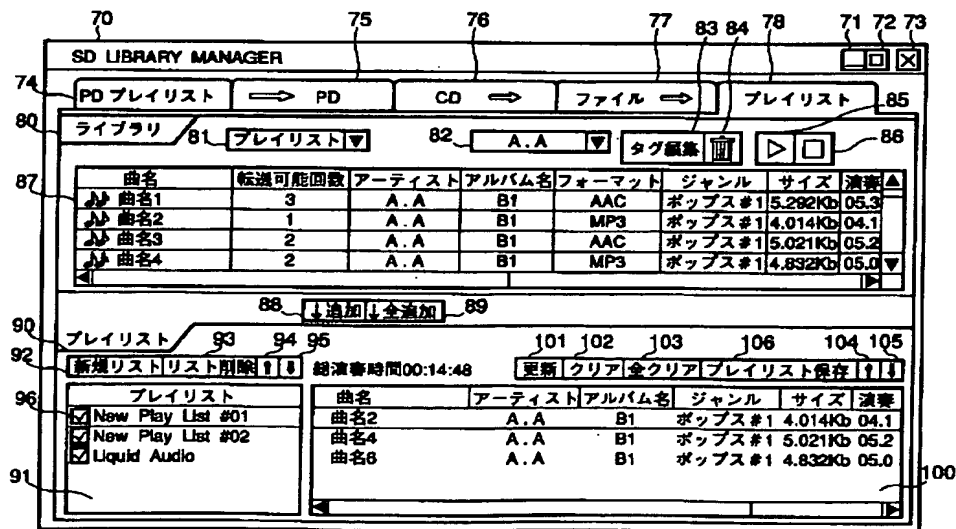 70 75 76 77 83 84 78 71 72 73
SD LIBRARY MANAGER
74 PD プレイリスト ⇨ PD CD ⇨ ファイル ⇨ プレイリスト
80 ライブラリ 81 プレイリスト ▼ 82 A.A ▼ タグ編集 85
86
87 曲名 転送可能回数 アーティスト アルバム名 フォーマット ジャンル サイズ 演奏
曲名1 3 A.A B1 AAC ポップス#1 5.292Kb 05.3
曲名2 1 A.A B1 MP3 ポップス#1 4.014Kb 04.1
曲名3 2 A.A B1 AAC ポップス#1 5.021Kb 05.2
曲名4 2 A.A B1 MP3 ポップス#1 4.832Kb 05.0
88 ↓追加 ↓全追加 89
90 プレイリスト 93 94 95 101 102 103 106 104 105
92 新規リスト リスト削除 ↑ ↓ 総演奏時間00:14:48 更新 クリア 全クリア プレイリスト保存 ↑ ↓
96 プレイリスト 曲名 アーティスト アルバム名 ジャンル サイズ 演奏
New Play List #01 曲名2 A.A B1 ポップス#1 4.014Kb 04.1
New Play List #02 曲名4 A.A B1 ポップス#1 5.021Kb 05.2
Liquid Audio 曲名6 A.A B1 ポップス#1 4.832Kb 05.0
91 100